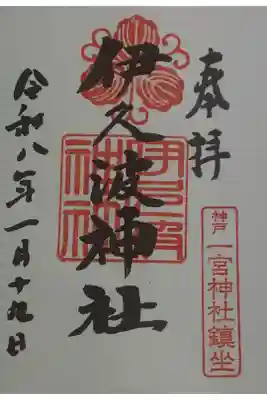 奉拝
神戸 一宮神社鎮坐
伊久波神社
令和八年一月十九日